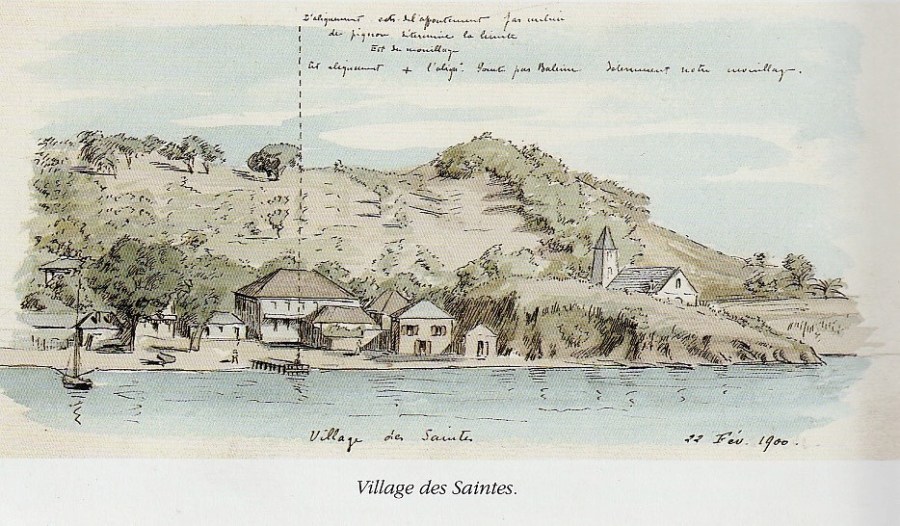 L'alignement de l'appontement par milieu
de pignon détermine la limite
Est du mouillage
Cet alignement + l'align^t. Pointe par Baleine déterminent notre mouillage.
Village des Saintes
22 Fév. 1900.
Village des Saintes.